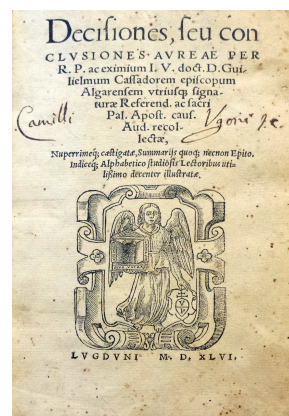 Decisiones, seu con
CLVSIONES AVREAE PER
R. P. ac eximium I. V. doct. D. Gui-
lielmum Cassadorem episcopum
Algarensem vtriusq; signa-
turæ Referend. ac sacri
Pal. Apost. caus.
Aud. recol-
lectæ,
Camilli
Nuperrimeq; castigatæ, Summarijs quoq; necnon Epito.
Indiceq; Alphabetico studiosis Lectoribus uti-
lissimo decenter illustratæ.
LVGDVNI M. D. XLVI.